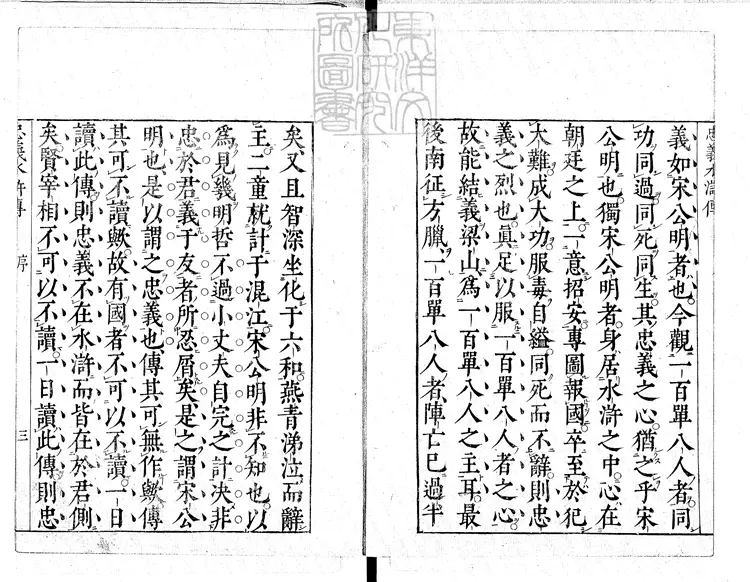 東洋文
化研究
所圖書
忠義水滸傳
義如宋公明者也今觀一百單八人者同
功同過同死同生其忠義之心猶之乎宋
公明也獨宋公明者身居水滸之中心在
朝廷之上一意招安專圖報國卒至於犯
大難成大功服毒自縊同死而不辭則忠
義之烈也眞足以服一百單八人者之心
故能結義梁山爲一百單八人之主耳最
後南征方臘一百單八人者陣亡已過半
矣又且智深坐化于六和燕青涕泣而辭
主二童就計于混江宋公明非不知也以
爲見幾明哲不過小丈夫自完之計決非
忠於君義于友者所忍屑矣是之謂宋公
明也是以謂之忠義也傳其可無作歟傳
其可不讀歟故有國者不可以不讀一日
讀此傳則忠義不在水滸而皆在於君側
矣賢宰相不可以不讀一日讀此傳則忠
忠義水滸傳 序 三